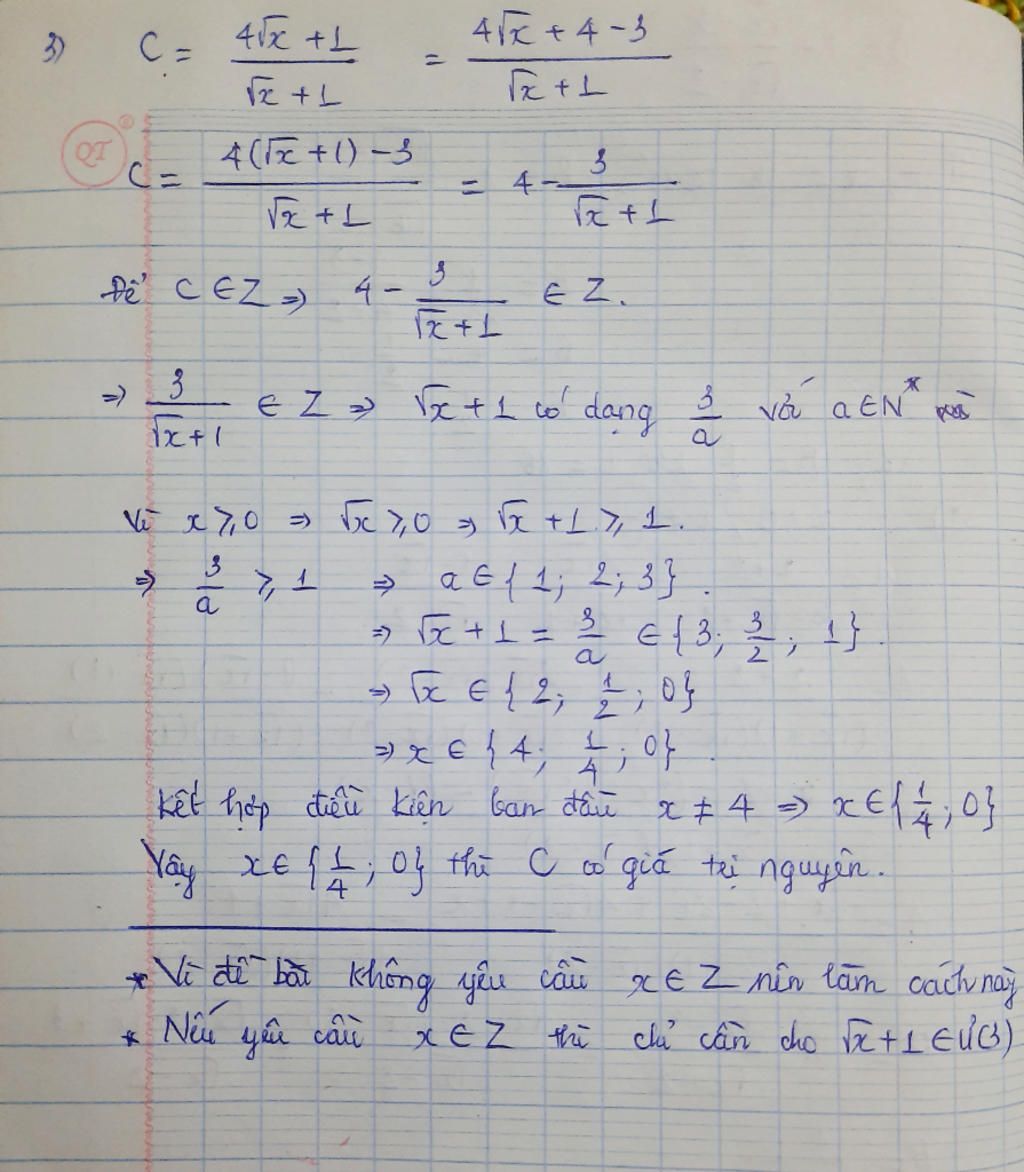 3) C = \frac{4\sqrt{x} + 1}{\sqrt{x} + 1} = \frac{4\sqrt{x} + 4 - 3}{\sqrt{x} + 1}
QT
C = \frac{4(\sqrt{x} + 1) - 3}{\sqrt{x} + 1} = 4 - \frac{3}{\sqrt{x} + 1}
Để C ∈ Z ⇒ 4 - \frac{3}{\sqrt{x} + 1} ∈ Z.
⇒ \frac{3}{\sqrt{x} + 1} ∈ Z ⇒ \sqrt{x} + 1 có dạng \frac{3}{a} với a ∈ N*
Vì x ⩾ 0 ⇒ \sqrt{x} ⩾ 0 ⇒ \sqrt{x} + 1 ⩾ 1.
⇒ \frac{3}{a} ⩾ 1 ⇒ a ∈ {1; 2; 3}.
⇒ \sqrt{x} + 1 = \frac{3}{a} ∈ {3; \frac{3}{2}; 1}.
⇒ \sqrt{x} ∈ {2; \frac{1}{2}; 0}
⇒ x ∈ {4; \frac{1}{4}; 0}
Kết hợp điều kiện ban đầu x ≠ 4 ⇒ x ∈ {\frac{1}{4}; 0}
Vậy x ∈ {\frac{1}{4}; 0} thì C có giá trị nguyên.
* Vì đề bài không yêu cầu x ∈ Z nên làm cách này
* Nếu yêu cầu x ∈ Z thì chỉ cần cho \sqrt{x} + 1 ∈ Ư(3)